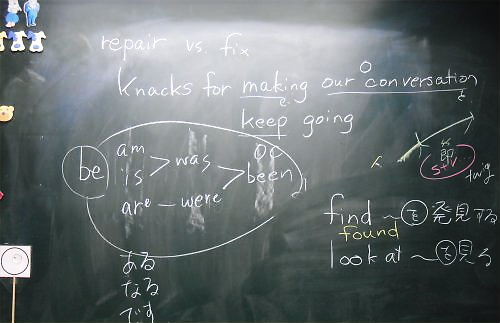 repair vs. fix
Knacks for making our conversation
O
c
keep going
oc
am
is > was
be > been
are — were
節
S+V
twig
find ~を発見する
found
look at ~を見る
ある
なる
です